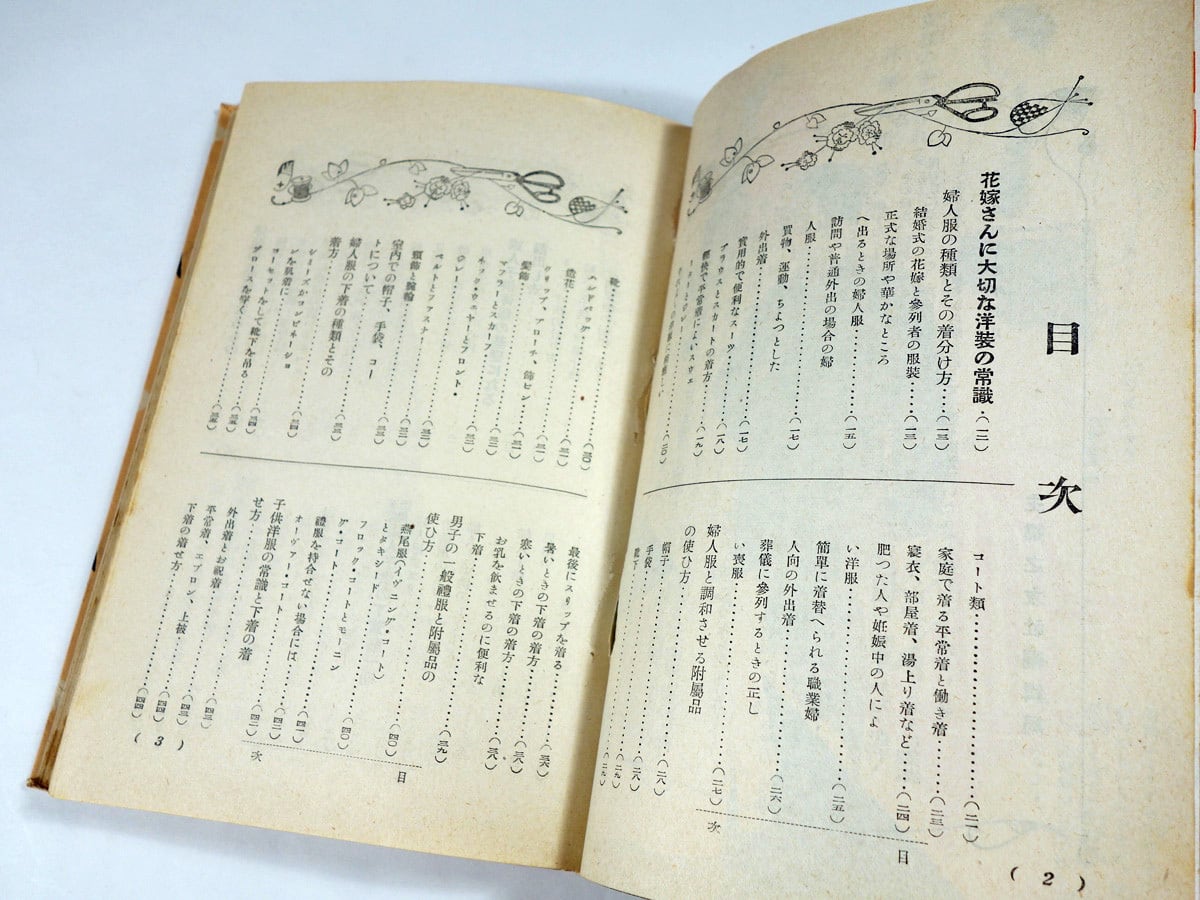 目次
花嫁さんに大切な洋装の常識‥(一二)
婦人服の種類とその着分け方……(一三)
結婚式の花嫁と參列者の服裝……(一三)
正式な場所や華かなところ
へ出るときの婦人服…………(一五)
訪問や普通外出の場合の婦
人服………………
買物、運動、ちょつとした
外出着………………(一七)
實用的で便利なスーツ………(一七)
ブラウスとスカートの着方……(一八)
輕快で平常着によいスウエ
(一九)
(二〇)
コート類………………(二一)
家庭で着る平常着と働き着……(二三)
寢衣、部屋着、湯上り着など……(二四)
肥つた人や妊娠中の人によ
い洋服………………(二五)
簡單に着替へられる職業婦
人向の外出着…………(二六)
葬儀に參列するときの正し
い喪服………………
婦人服と調和させる附屬品
の使ひ方………………(二七)
帽子………………(二八)
手袋………………(二八)
靴下………………(二九)
(二九)
目次
(2)
靴………………(三〇)
ハンドバッグ………………
造花………………(三一)
クリップ、ブローチ、飾ピン……(三一)
髪飾………………(三一)
マフラーとスカーフ………(三二)
ネックウェヤーとフロント・
ヴレー………………(三二)
ベルトとファスナ………(三二)
頸飾と腕輪………………(三二)
室内での帽子、手袋、コー
トについて………………(三三)
婦人服の下着の種類とその
着方………………(三三)
シミーズかコンビネーショ
ンを肌着に………………(三四)
コーセットをして靴下を吊る……(三四)
ブロースを穿く…………(三五)
(三五)
最後にスリップを着る………(三六)
暑いときの下着の着方………(三八)
寒いときの下着の着方………(三八)
お乳を飲ませるのに便利な
下着………………(三八)
男子の一般禮服と附屬品の
使ひ方………………(三九)
燕尾服(イヴニング・コート)
とタキシード………………(四〇)
フロック・コートとモーニン
グ・コート………………(四〇)
禮服を持合せない場合には……(四一)
オーヴァー・コート………(四二)
子供洋服の常識と下着の着
せ方………………(四二)
外出着とお祝着…………(四三)
平常着、エプロン、上被……(四三)
下着の着せ方…………(四四)
(四四)
目次
(3)